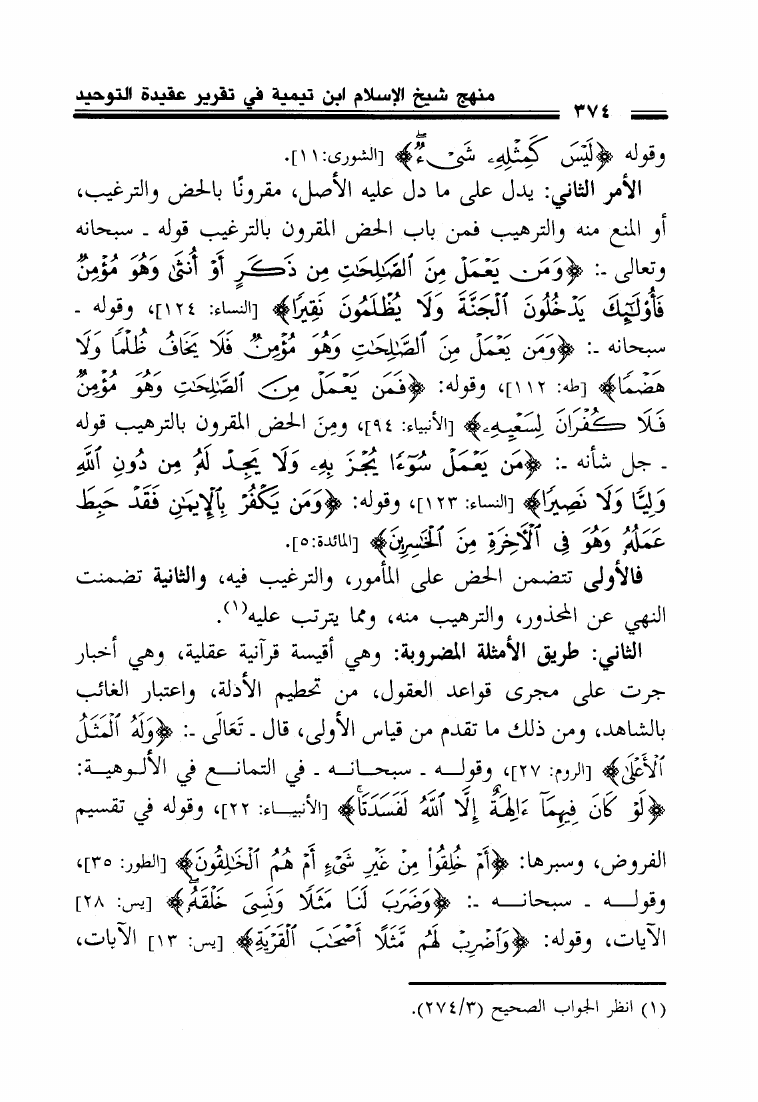 منهج شيخ الإسلام ابن تيمية في تقرير عقيدة التوحيد
٣٧٤
وقوله ﴿لَيْسَ كَمِثْلِهِۦ شَىْءٌۖ﴾ [الشورى:١١].
الأمر الثاني: يدل على ما دل عليه الأصل، مقرونًا بالحض والترغيب،
أو المنع منه والترهيب فمن باب الحض المقرون بالترغيب قوله ـ سبحانه
وتعالى ـ: ﴿وَمَن يَعْمَلْ مِنَ ٱلصَّٰلِحَٰتِ مِن ذَكَرٍ أَوْ أُنثَىٰ وَهُوَ مُؤْمِنٌ
فَأُو۟لَٰٓئِكَ يَدْخُلُونَ ٱلْجَنَّةَ وَلَا يُظْلَمُونَ نَقِيرًا﴾ [النساء: ١٢٤]، وقوله ـ
سبحانه ـ: ﴿وَمَن يَعْمَلْ مِنَ ٱلصَّٰلِحَٰتِ وَهُوَ مُؤْمِنٌ فَلَا يَخَافُ ظُلْمًا وَلَا
هَضْمًا﴾ [طه: ١١٢]، وقوله: ﴿فَمَن يَعْمَلْ مِنَ ٱلصَّٰلِحَٰتِ وَهُوَ مُؤْمِنٌ
فَلَا كُفْرَانَ لِسَعْيِهِۦ﴾ [الأنبياء: ٩٤]، ومِنَ الحض المقرون بالترهيب قوله
ـ جل شأنه ـ: ﴿مَن يَعْمَلْ سُوٓءًا يُجْزَ بِهِۦ وَلَا يَجِدْ لَهُۥ مِن دُونِ ٱللَّهِ
وَلِيًّا وَلَا نَصِيرًا﴾ [النساء: ١٢٣]، وقوله: ﴿وَمَن يَكْفُرْ بِٱلْإِيمَٰنِ فَقَدْ حَبِطَ
عَمَلُهُۥ وَهُوَ فِى ٱلْءَاخِرَةِ مِنَ ٱلْخَٰسِرِينَ﴾ [المائدة:٥].
فالأولى تتضمن الحض على المأمور، والترغيب فيه، والثانية تضمنت
النهي عن المحذور، والترهيب منه، ومما يترتب عليه(١).
الثاني: طريق الأمثلة المضروبة: وهي أقيسة قرآنية عقلية، وهي أخبار
جرت على مجرى قواعد العقول، من تحطيم الأدلة، واعتبار الغائب
بالشاهد، ومن ذلك ما تقدم من قياس الأولى، قال ـ تَعَالَى ـ: ﴿وَلَهُ ٱلْمَثَلُ
ٱلْأَعْلَىٰ﴾ [الروم: ٢٧]، وقولـه ـ سبحـانـه ـ في التمانـع في الألـوهيـة:
﴿لَوْ كَانَ فِيهِمَآ ءَالِهَةٌ إِلَّا ٱللَّهُ لَفَسَدَتَا﴾ [الأنبيـاء: ٢٢]، وقوله في تقسيم
الفروض، وسبرها: ﴿أَمْ خُلِقُوا۟ مِنْ غَيْرِ شَىْءٍ أَمْ هُمُ ٱلْخَٰلِقُونَ﴾ [الطور: ٣٥]،
وقولـه ـ سبحانـه ـ: ﴿وَضَرَبَ لَنَا مَثَلًا وَنَسِىَ خَلْقَهُۥۖ﴾ [يس: ٢٨]
الآيات، وقوله: ﴿وَٱضْرِبْ لَهُم مَّثَلًا أَصْحَٰبَ ٱلْقَرْيَةِ﴾ [يس: ١٣] الآيات،
(١) انظر الجواب الصحيح (٣/٢٧٤).